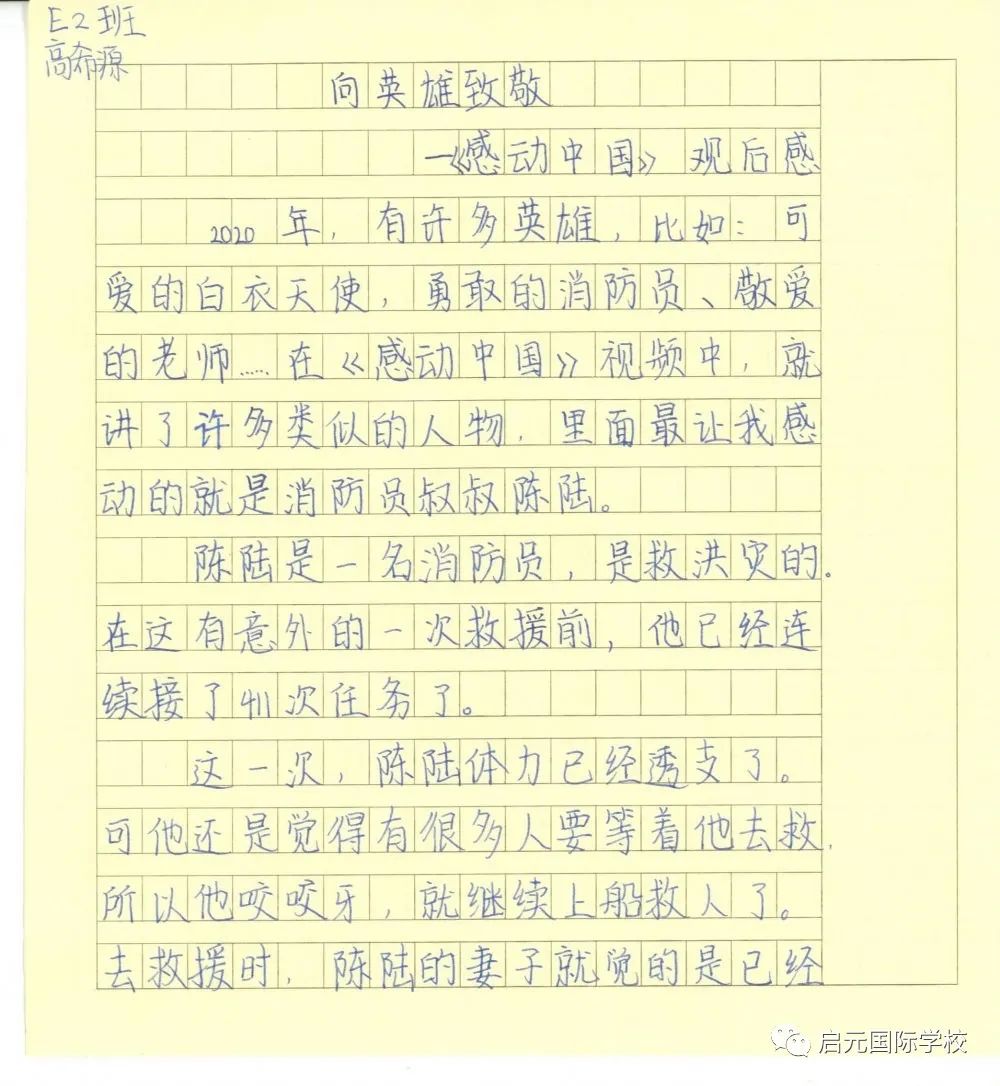 E2班
高希源
向英雄致敬
—《感动中国》观后感
2020年，有许多英雄，比如：可
爱的白衣天使，勇敢的消防员、敬爱
的老师……在《感动中国》视频中，就
讲了许多类似的人物，里面最让我感
动的就是消防员叔叔陈陆。
陈陆是一名消防员，是救洪灾的.
在这有意外的一次救援前，他已经连
续接了411次任务了。
这一次，陈陆体力已经透支了。
可他还是觉得有很多人要等着他去救，
所以他咬咬牙，就继续上船救人了。
去救援时，陈陆的妻子就觉的是已经
启元国际学校